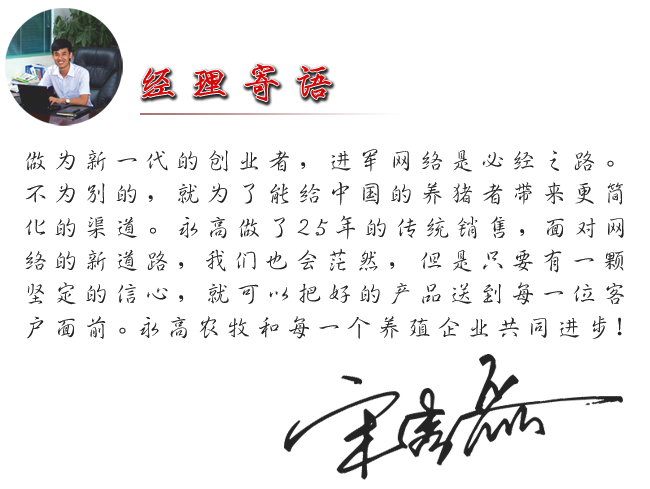 经理寄语
做为新一代的创业者，进军网络是必经之路。
不为别的，就为了能给中国的养猪者带来更简
化的渠道。永高做了25年的传统销售，面对网
络的新道路，我们也会茫然，但是只要有一颗
坚定的信心，就可以把好的产品送到每一位客
户面前。永高农牧和每一个养殖企业共同进步！